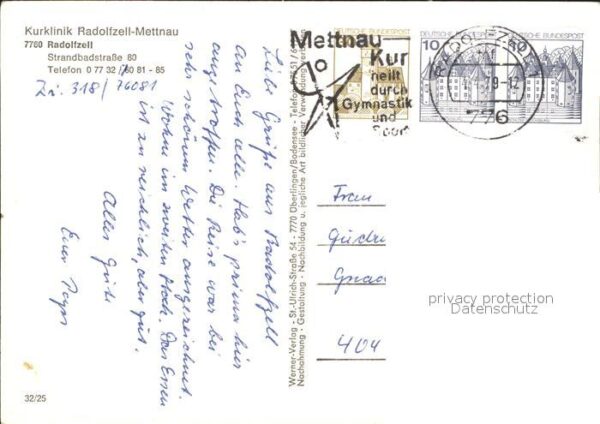 Kurklinik Radolfzell-Mettnau
7760 Radolfzell
Strandbadstraße 80
Telefon 0 77 32 / 81 - 85
Zi. 318 / 76081
Liebe Grüße aus Radolfzell
an Euch alle. Hab's prima hier
angetroffen. Die Reise war bei
sehr schönem Wetter ausgezeichnet.
Wohne im zweiten Stock. Das Essen
ist zu reichlich, aber gut.
Alles Gute
Euer
32/25
Werner-Verlag - St.-Ulrich-Straße 54 - 7770 Überlingen/Bodensee - Telefon
Nachahmung - Gestaltung - Nachbildung u. jegliche Art bildlicher Verwertung verboten
Mettnau
Kur
heilt
durch
Gymnastik
und
Sport
10
DEUTSCHE BUNDESPOST
RADOLFZELL
776
Frau
Gudru
Gnad
404
privacy protection
Datenschutz